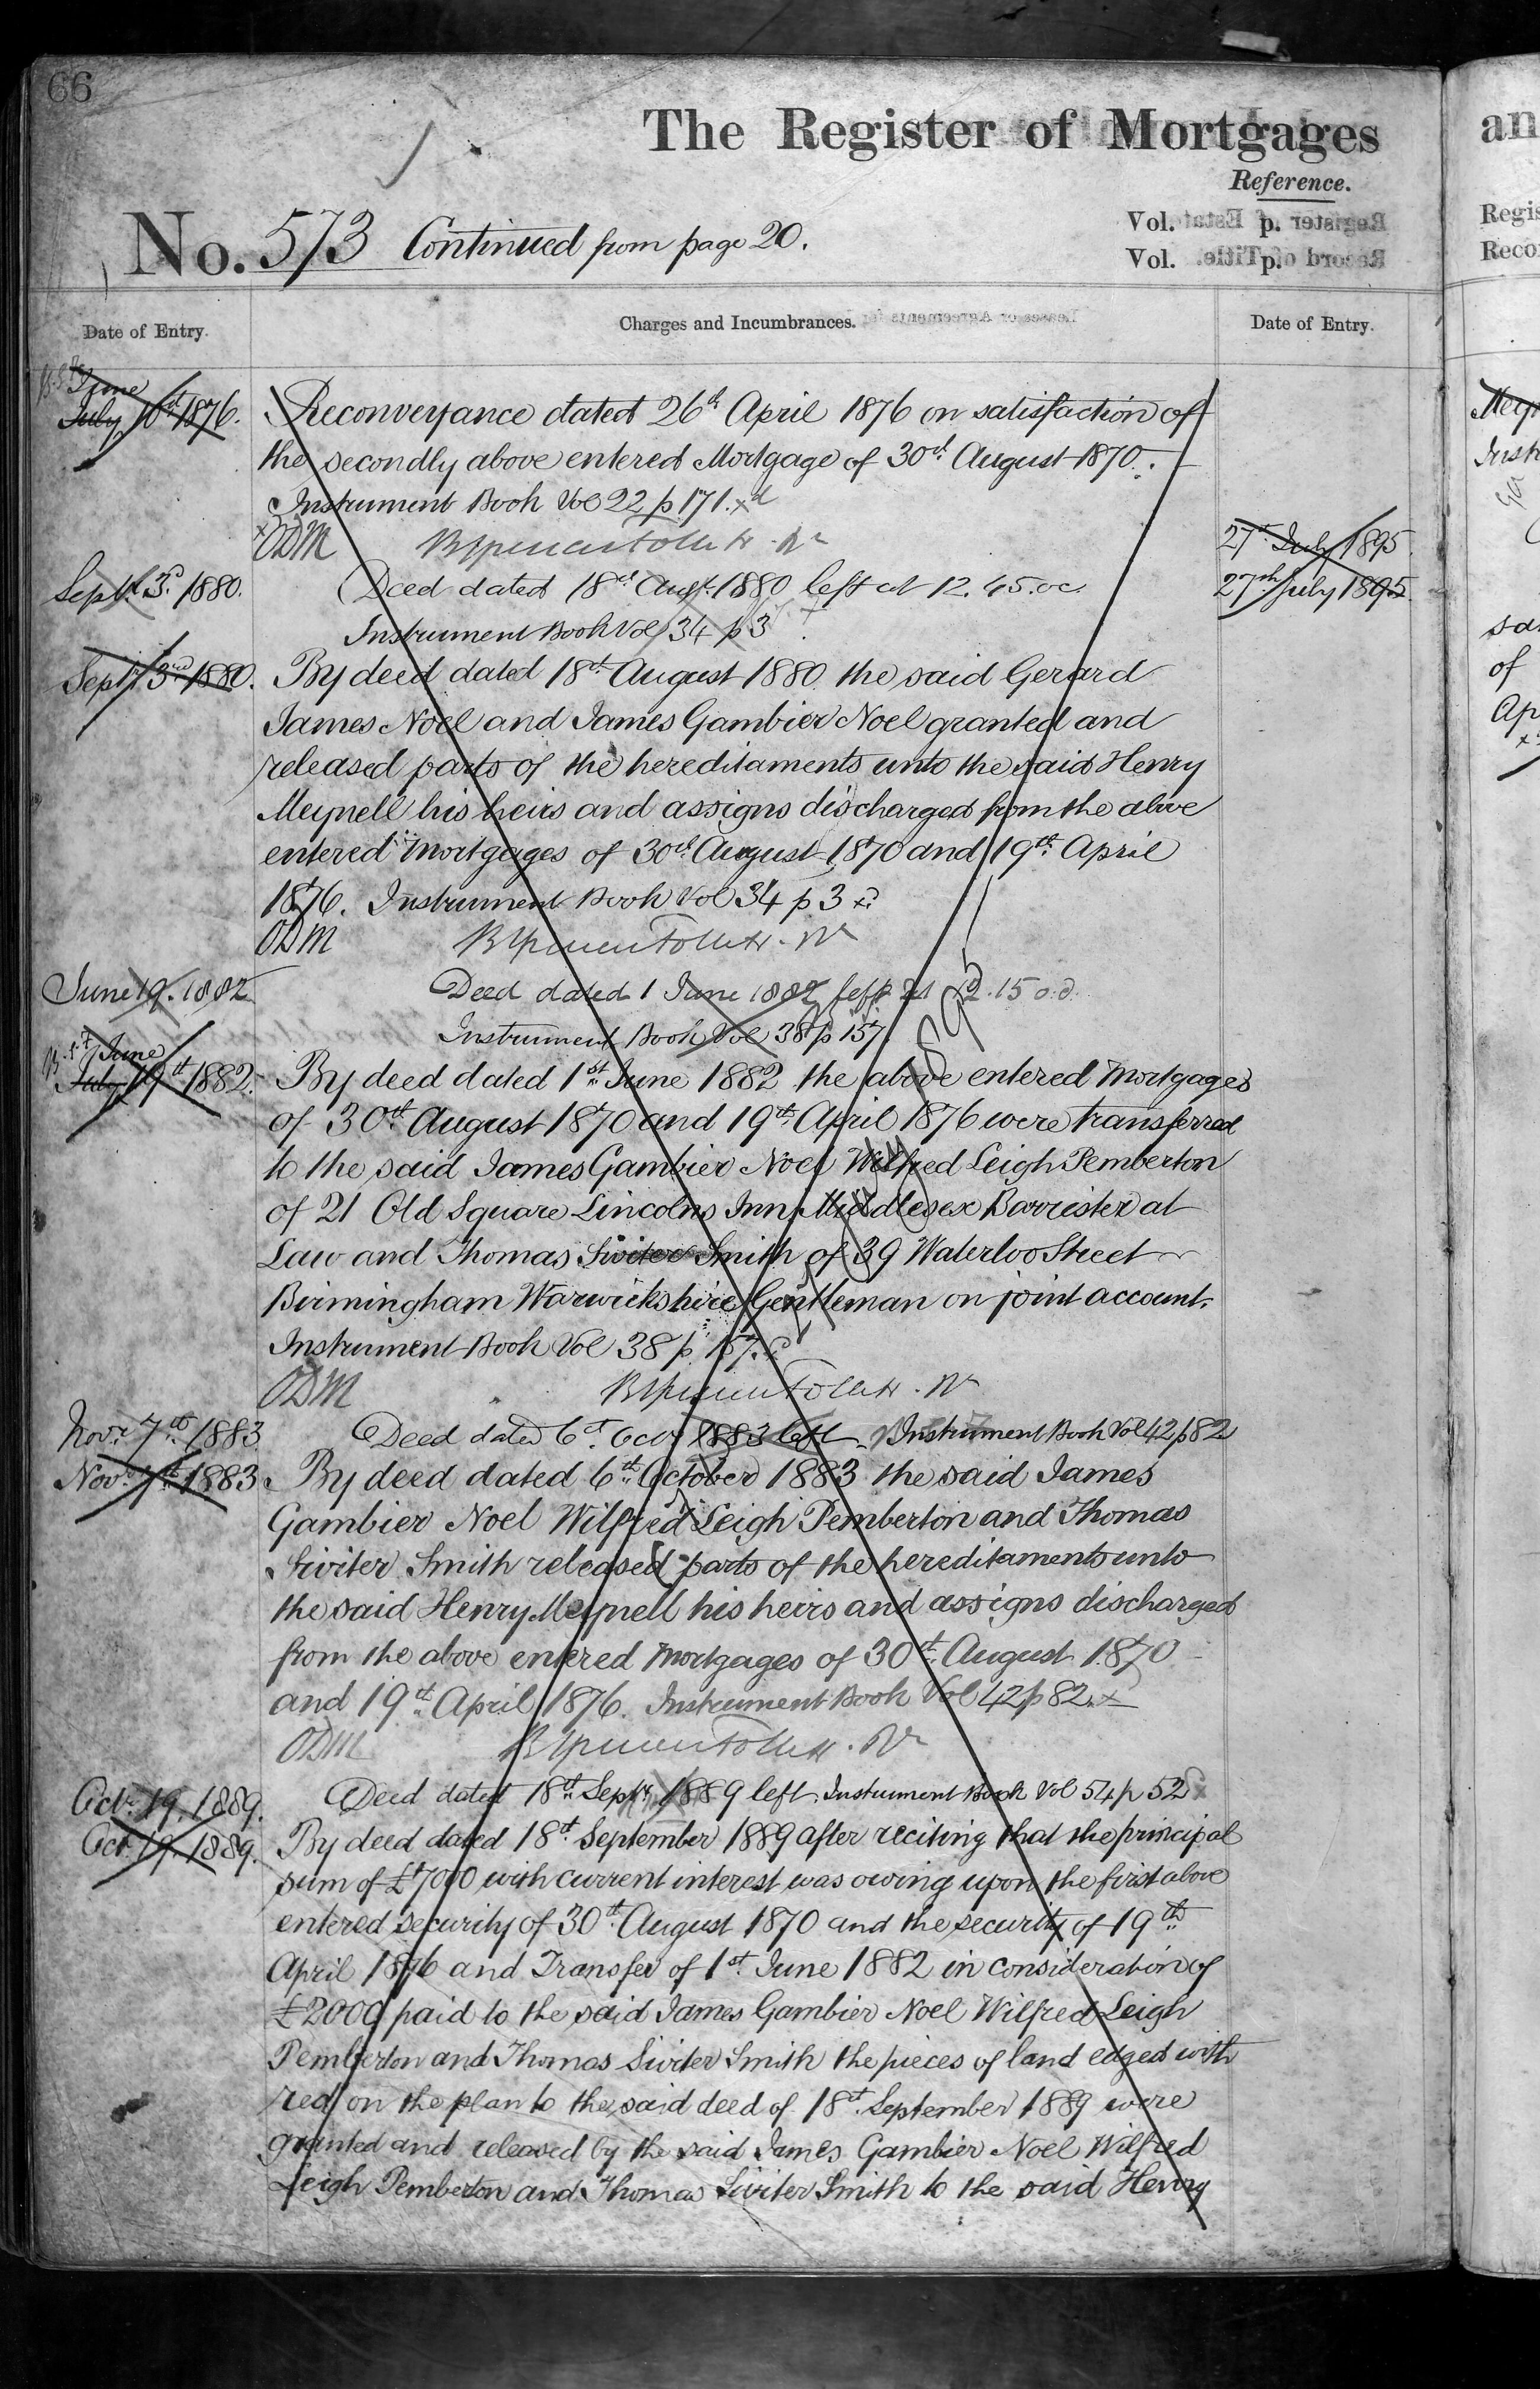 66
The Register of Mortgages
Reference.
No. 573 Continued from page 20.
Vol. p.
Vol. p.
Date of Entry.
Charges and Incumbrances.
Date of Entry.
June
July 10th 1876.
Reconveyance dated 26th April 1876 on satisfaction of
the secondly above entered Mortgage of 30th August 1870.
Instrument Book Vol 22 p 171.
ODM
27th July 1895.
Sept. 3d 1880.
Deed dated 18th Augt. 1880 left at 12.45.oc
27th July 1895.
Instrument Book Vol 34 p 3
Septr 3rd 1880.
By deed dated 18th August 1880 the said Gerard
James Noel and James Gambier Noel granted and
released parts of the hereditaments unto the said Henry
Meynell his heirs and assigns discharged from the above
entered Mortgages of 30th August 1870 and 19th April
1876. Instrument Book Vol 34 p 3
ODM
June 19. 1882
Deed dated 1 June 1882 left at 12.15 o.c.
Instrument Book Vol 38 p 157.
June
July 19th 1882.
By deed dated 1st June 1882 the above entered Mortgages
of 30th August 1870 and 19th April 1876 were transferred
to the said James Gambier Noel Wilfred Leigh Pemberton
of 21 Old Square Lincolns Inn Middlesex Barrister at
Law and Thomas Siviter Smith of 39 Waterloo Street
Birmingham Warwickshire Gentleman on joint account.
Instrument Book Vol 38 p 157.
ODM
Novr. 7th 1883
Deed dated 6th Octr 1883 left Instrument Book Vol 42 p 82
Novr. 7th 1883.
By deed dated 6th October 1883 the said James
Gambier Noel Wilfred Leigh Pemberton and Thomas
Siviter Smith released parts of the hereditaments unto
the said Henry Meynell his heirs and assigns discharged
from the above entered Mortgages of 30th August 1870
and 19th April 1876. Instrument Book Vol 42 p 82.
ODM
Octr. 19. 1889.
Deed dated 18th Septr. 1889 left. Instrument Book Vol 54 p 52
Octr. 19. 1889.
By deed dated 18th September 1889 after reciting that the principal
sum of £7000 with current interest was owing upon the first above
entered security of 30th August 1870 and the security of 19th
April 1876 and Transfer of 1st June 1882 in consideration of
£2000 paid to the said James Gambier Noel Wilfred Leigh
Pemberton and Thomas Siviter Smith the pieces of land edged with
red on the plan to the said deed of 18th September 1889 were
granted and released by the said James Gambier Noel Wilfred
Leigh Pemberton and Thomas Siviter Smith to the said Henry